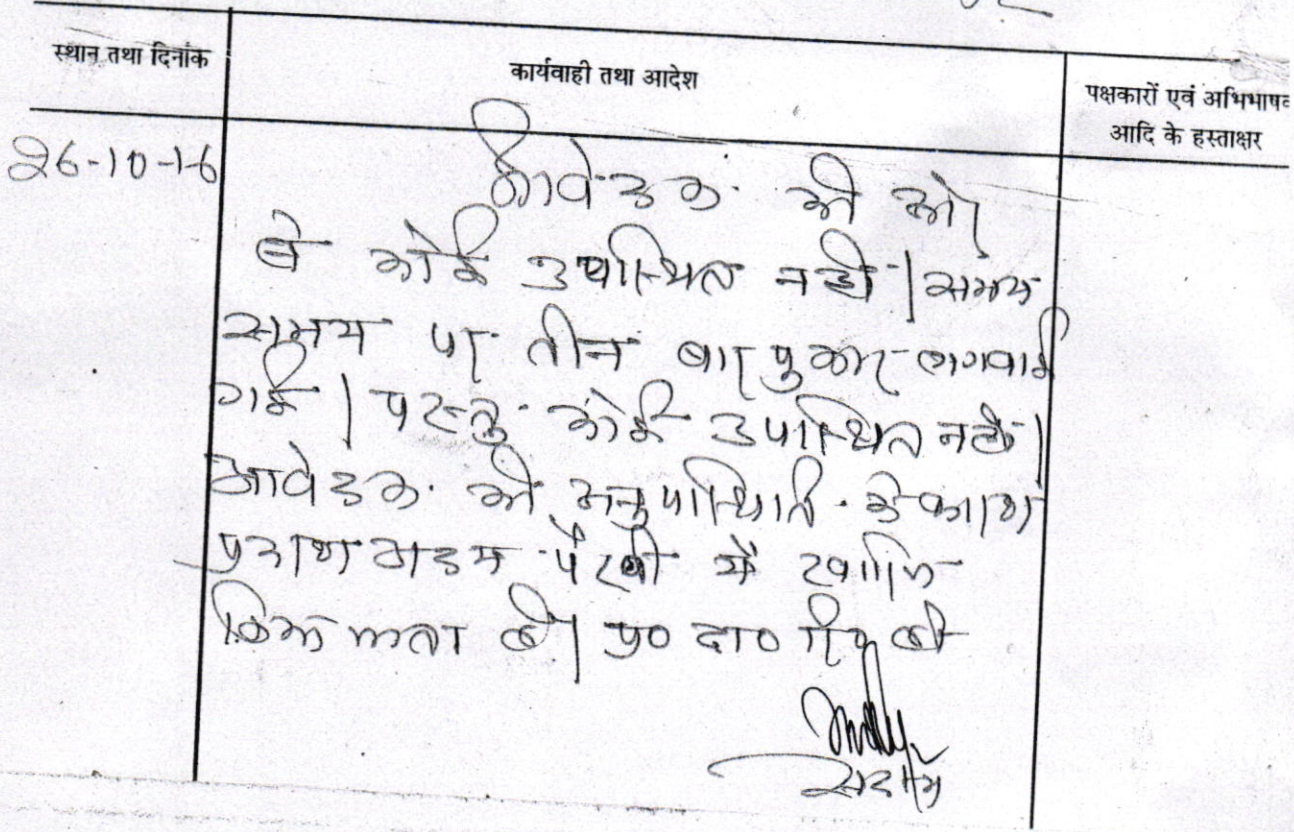 स्थान तथा दिनांक
कार्यवाही तथा आदेश
पक्षकारों एवं अभिभाषक
आदि के हस्ताक्षर
26-10-16
आवेदक की ओर
से कोई उपस्थित नही । समय
समय पर तीन बार पुकार लगवाई
गई । परन्तु कोई उपस्थित नही ।
आवेदक की अनुपस्थिति के कारण
प्रकरण अदम पैरवी में खारिज
किया जाता है । प्र० दा० रि० हो
सदस्य